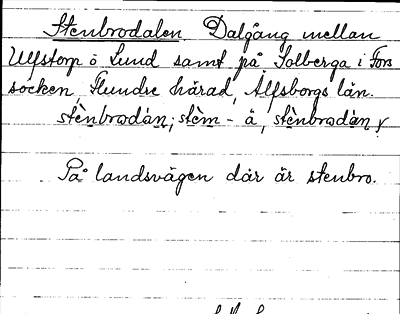 Stenbrodalen. Dalgång mellan
Ulfstorp o Lund samt på Solberga i Fors
socken, Flundre härad, Älfsborgs län.
stènbrodán; stèm - å, stènbrodán
På landsvägen där är stenbro.